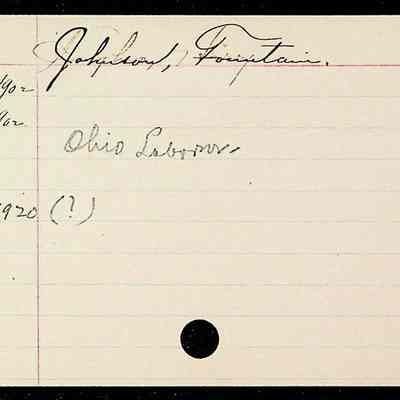 Johnson, Fountain.
1902
1902
Ohio Laborer
1920 (?)